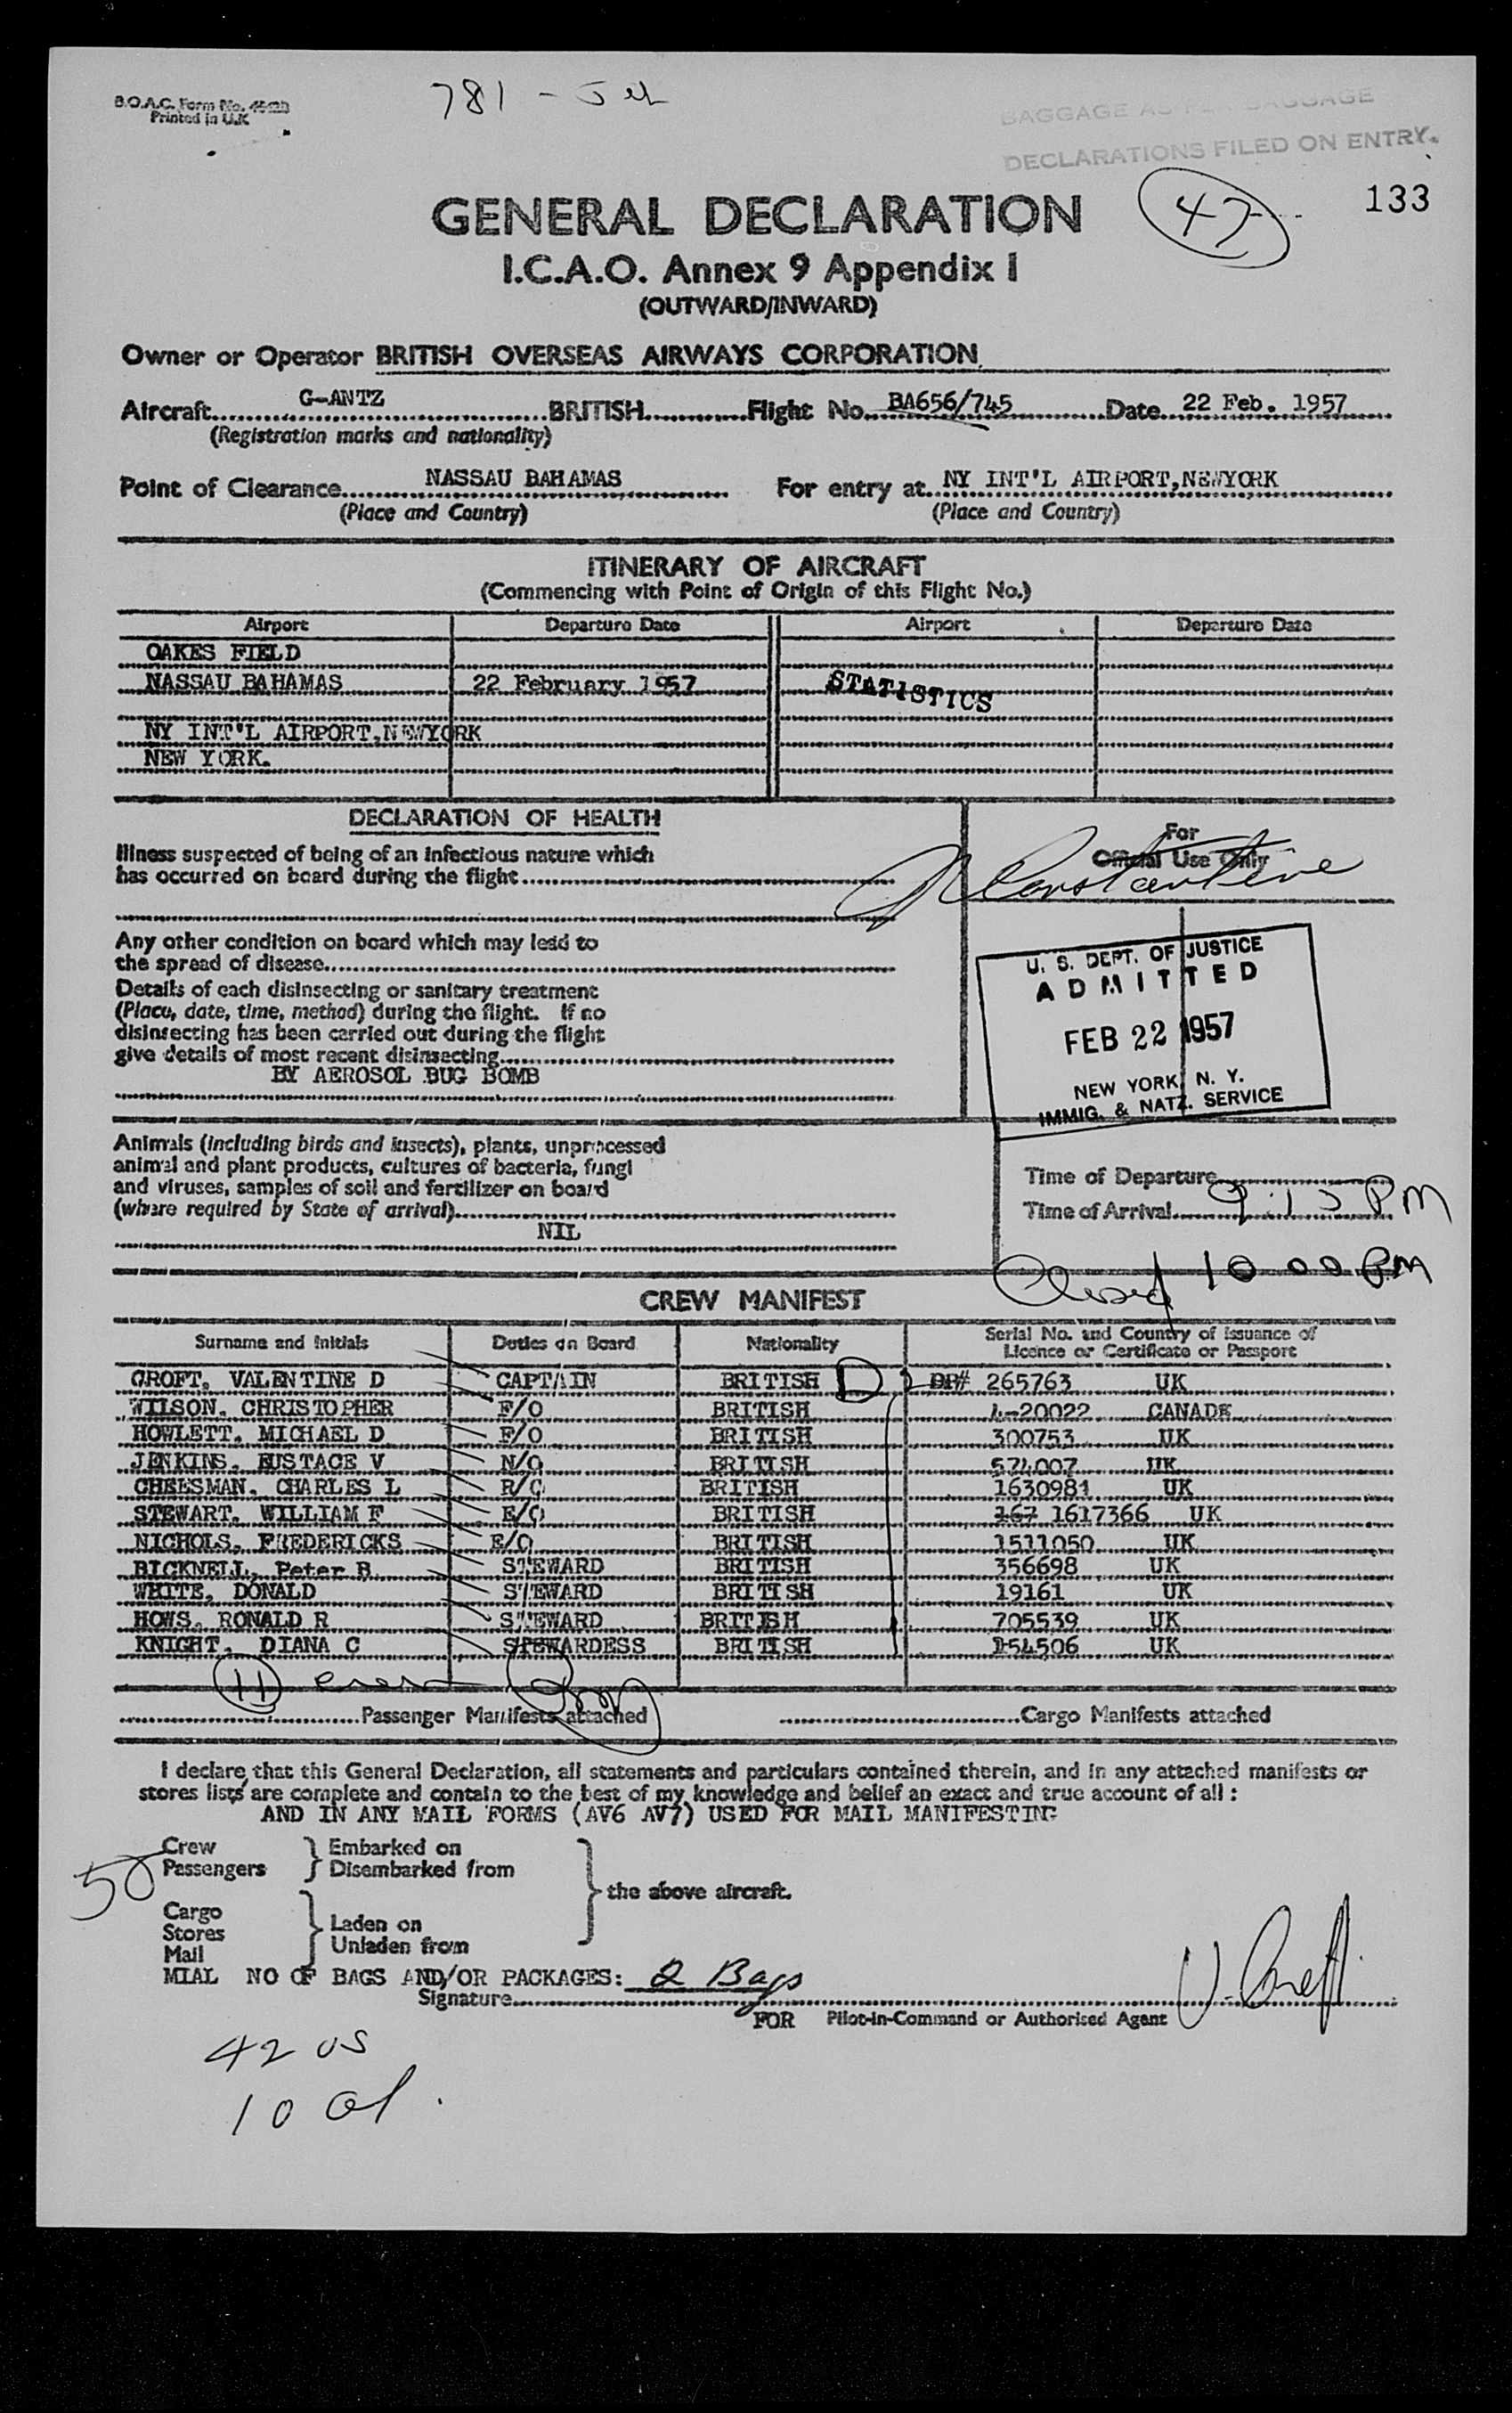 B.O.A.C. Form No.
Printed in U.K
781 -
BAGGAGE AS PER BAGGAGE
DECLARATIONS FILED ON ENTRY.
47
133
GENERAL DECLARATION
I.C.A.O. Annex 9 Appendix I
(OUTWARD/INWARD)
Owner or Operator BRITISH OVERSEAS AIRWAYS CORPORATION
Aircraft G-ANTZ BRITISH Flight No. BA656/745 Date 22 Feb. 1957
(Registration marks and nationality)
Point of Clearance NASSAU BAHAMAS For entry at NY INT'L AIRPORT,NEWYORK
(Place and Country) (Place and Country)
ITINERARY OF AIRCRAFT
(Commencing with Point of Origin of this Flight No.)
Airport Departure Date Airport Departure Date
OAKES FIELD
NASSAU BAHAMAS 22 February 1957 STATISTICS
NY INT'L AIRPORT,NEWYORK
NEW YORK.
DECLARATION OF HEALTH
Illness suspected of being of an infectious nature which
has occurred on board during the flight
For
Official Use Only
Constantine
Any other condition on board which may lead to
the spread of disease
Details of each disinsecting or sanitary treatment
(Place, date, time, method) during the flight. If no
disinsecting has been carried out during the flight
give details of most recent disinsecting
BY AEROSOL BUG BOMB
U. S. DEPT. OF JUSTICE
ADMITTED
FEB 22 1957
NEW YORK, N. Y.
IMMIG. & NATZ. SERVICE
Animals (including birds and insects), plants, unprocessed
animal and plant products, cultures of bacteria, fungi
and viruses, samples of soil and fertilizer on board
(where required by State of arrival)
NIL
Time of Departure
Time of Arrival 9:15 PM
Closed 10 00 PM
CREW MANIFEST
Surname and Initials Duties on Board Nationality Serial No. and Country of Issuance of
Licence or Certificate or Passport
CROFT, VALENTINE D CAPTAIN BRITISH D DP# 265763 UK
WILSON, CHRISTOPHER F/O BRITISH L-20022 CANADE
HOWLETT, MICHAEL D F/O BRITISH 300753 UK
JENKINS, EUSTACE V N/O BRITISH 574007 UK
CHEESMAN, CHARLES L R/O BRITISH 1630981 UK
STEWART, WILLIAM F E/O BRITISH 167 1617366 UK
NICHOLS, FREDERICKS E/O BRITISH 1511050 UK
BICKNELL, Peter B STEWARD BRITISH 356698 UK
WHITE, DONALD STEWARD BRITISH 19161 UK
HOWS, RONALD R STEWARD BRITISH 705539 UK
KNIGHT, DIANA C STEWARDESS BRITISH 154506 UK
11 crew
Passenger Manifests attached Cargo Manifests attached
I declare that this General Declaration, all statements and particulars contained therein, and in any attached manifests or
stores lists are complete and contain to the best of my knowledge and belief an exact and true account of all :
AND IN ANY MAIL FORMS (AV6 AV7) USED FOR MAIL MANIFESTING
Crew Embarked on
50 Passengers Disembarked from
the above aircraft.
Cargo Laden on
Stores
Mail Unladen from
MIAL NO OF BAGS AND/OR PACKAGES: 2 Bags
Signature
FOR Pilot-in-Command or Authorised Agent
42 US
10 al.